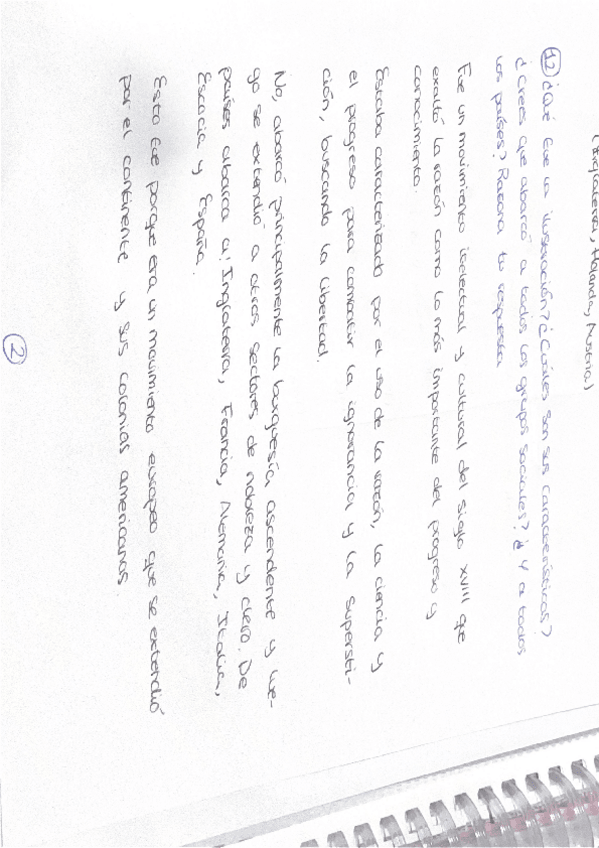 (Inglaterra, Holanda, Austria.)
12 ¿Qué fue la ilustración? ¿Cuáles son sus características?
¿Crees que abarcó a todos los grupos sociales? ¿Y a todos
los países? Razona tu respuesta
Fue un movimiento itelectual y cultural del siglo XVIII que
exaltó la razón como lo más importante del progreso y
conocimiento.
Estaba caracterizado por el uso de la razón, la ciencia y
el progreso para combatir la ignorancia y la supersti-
ción, buscando la libertad.
No, abarcó principalmente la burguesía ascendente y lue-
go se extendió a otros sectores de nobreza y clero. De
países abarca a: Inglaterra, Francia, Alemania, Italia,
Escocia y España.
Esto fue porque era un movimiento europeo que se extendió
por el continente y sus colonias americanas.
2